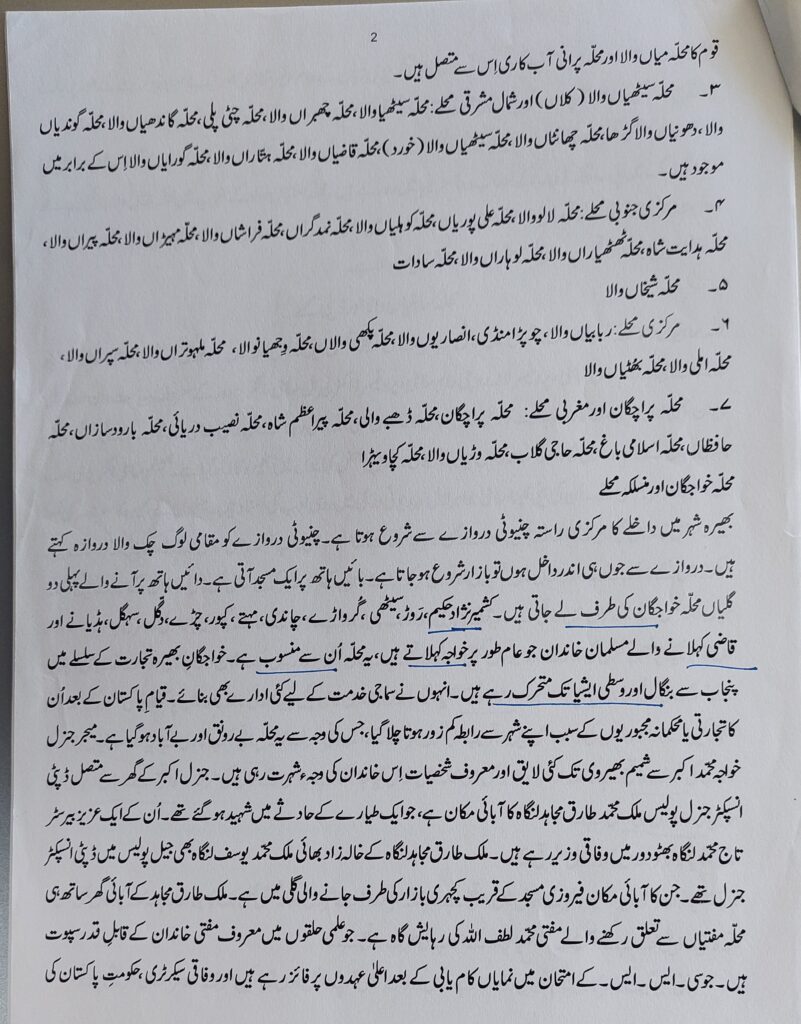 2
قوم کا محلہ میاں والا اور محلّہ پرانی آب کاری اِس سے متصل ہیں۔
۳۔ محلّہ سیٹھیاں والا (کلاں) اور شمال مشرقی محلے: محلّہ سیٹھیا والا، محلّہ چھبراں والا، محلّہ چٹی پلی، محلّہ گاندھیاں والا، محلّہ گوندیاں
والا، دھونیاں والا گڑھا، محلّہ چھانٹاں والا، محلّہ سیٹھیاں والا (خورد)، محلّہ قاضیاں والا، محلہ ہتّاراں والا، محلّہ گورایاں والا اِس کے برابر میں
موجود ہیں۔
۴۔ مرکزی جنوبی محلے: محلّہ لالو والا، محلّہ علی پوریاں، محلّہ کوہلیاں والا، محلّہ نمدگراں، محلّہ فراشاں والا، محلّہ مہیڑاں والا، محلّہ پیراں والا،
محلّہ ہدایت شاہ، محلّہ ٹھٹھیاراں والا، محلّہ لوہاراں والا، محلّہ سادات
۵۔ محلّہ شیخاں والا
۶۔ مرکزی محلے: ربابیاں والا، چوپڑا منڈی، انصاریوں والا، محلّہ پکھی والاں، محلّہ وِجھیانوالا، محلّہ ملہوتراں والا، محلّہ سپراں والا،
محلّہ املی والا، محلّہ بھُٹیاں والا
۷۔ محلّہ پراچگان اور مغربی محلے: محلّہ پراچگان، محلّہ ڈھبے والی، محلّہ پیر اعظم شاہ، محلّہ نصیب دریائی، محلّہ بارود سازاں، محلّہ
حافظاں، محلّہ اسلامی باغ، محلّہ حاجی گلاب، محلّہ وڑیاں والا، محلّہ کچا ویہڑا
محلّہ خواجگان اور منسلکہ محلے
بھیرہ شہر میں داخلے کا مرکزی راستہ چنیوٹی دروازے سے شروع ہوتا ہے۔ چنیوٹی دروازے کو مقامی لوگ چک والا دروازہ کہتے
ہیں۔ دروازے سے جوں ہی اندر داخل ہوں تو بازار شروع ہو جاتا ہے۔ بائیں ہاتھ پر ایک مسجد آتی ہے۔ دائیں ہاتھ پر آنے والے پہلی دو
گلیاں محلّہ خواجگان کی طرف لے جاتی ہیں۔ کشمیر نژاد حکیم، زوڑ، سیٹھی، گُرواڑے، چاندی، مہتے، کپور، چڑے، دُگل، سہگل، ہڈیانے اور
قاضی کہلانے والے مسلمان خاندان جو عام طور پر خواجہ کہلاتے ہیں، یہ محلّہ اُن سے منسوب ہے۔ خواجگانِ بھیرہ تجارت کے سلسلے میں
پنجاب سے بنگال اور وسطی ایشیا تک متحرک رہے ہیں۔ انہوں نے سماجی خدمت کے لیے کئی ادارے بھی بنائے۔ قیامِ پاکستان کے بعد اُن
کا تجارتی یا محکمانہ مجبوریوں کے سبب اپنے شہر سے رابطہ کم زور ہوتا چلا گیا، جس کی وجہ سے یہ محلّہ بے رونق اور بے آباد ہو گیا ہے۔ میجر جنرل
خواجہ محمّد اکبر سے شمیم بھیروی تک کئی لایق اور معروف شخصیات اِس خاندان کی وجہء شہرت رہی ہیں۔ جنرل اکبر کے گھر سے متصل ڈپٹی
انسپکٹر جنرل پولیس ملک محمّد طارق مجاہد لنگاہ کا آبائی مکان ہے، جو ایک طیارے کے حادثے میں شہید ہو گئے تھے۔ اُن کے ایک عزیز بیرسٹر
تاج محمّد لنگاہ بھٹو دور میں وفاقی وزیر رہے ہیں۔ ملک طارق مجاہد لنگاہ کے خالہ زاد بھائی ملک محمّد یوسف لنگاہ بھی جیل پولیس میں ڈپٹی انسپکٹر
جنرل تھے۔ جن کا آبائی مکان فیروزی مسجد کے قریب کچہری بازار کی طرف جانے والی گلی میں ہے۔ ملک طارق مجاہد کے آبائی گھر ساتھ ہی
محلّہ مفتیاں سے تعلق رکھنے والے مفتی محمّد لطف اللہ کی رہایش گاہ ہے۔ جو علمی حلقوں میں معروف مفتی خاندان کے قابلِ قدر سپوت
ہیں۔ جو سی۔ ایس۔ ایس۔ کے امتحان میں نمایاں کام یابی کے بعد اعلیٰ عہدوں پر فائز رہے ہیں اور وفاقی سیکرٹری، حکومتِ پاکستان کی